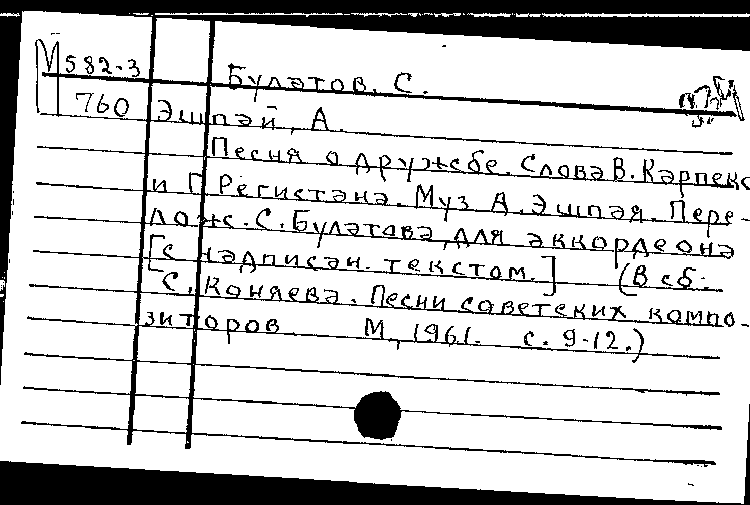 М 582-3 Булатов, С.
760 Эшпай, А.
Песня о дружбе. Слова В. Карпеко
и Г. Регистана. Муз. А. Эшпая. Пере-
лож. С. Булатова для аккордеона
[с надписан. текстом.] (В сб.:
С. Коняева. Песни советских компо-
зиторов. М., 1961. с. 9-12.)